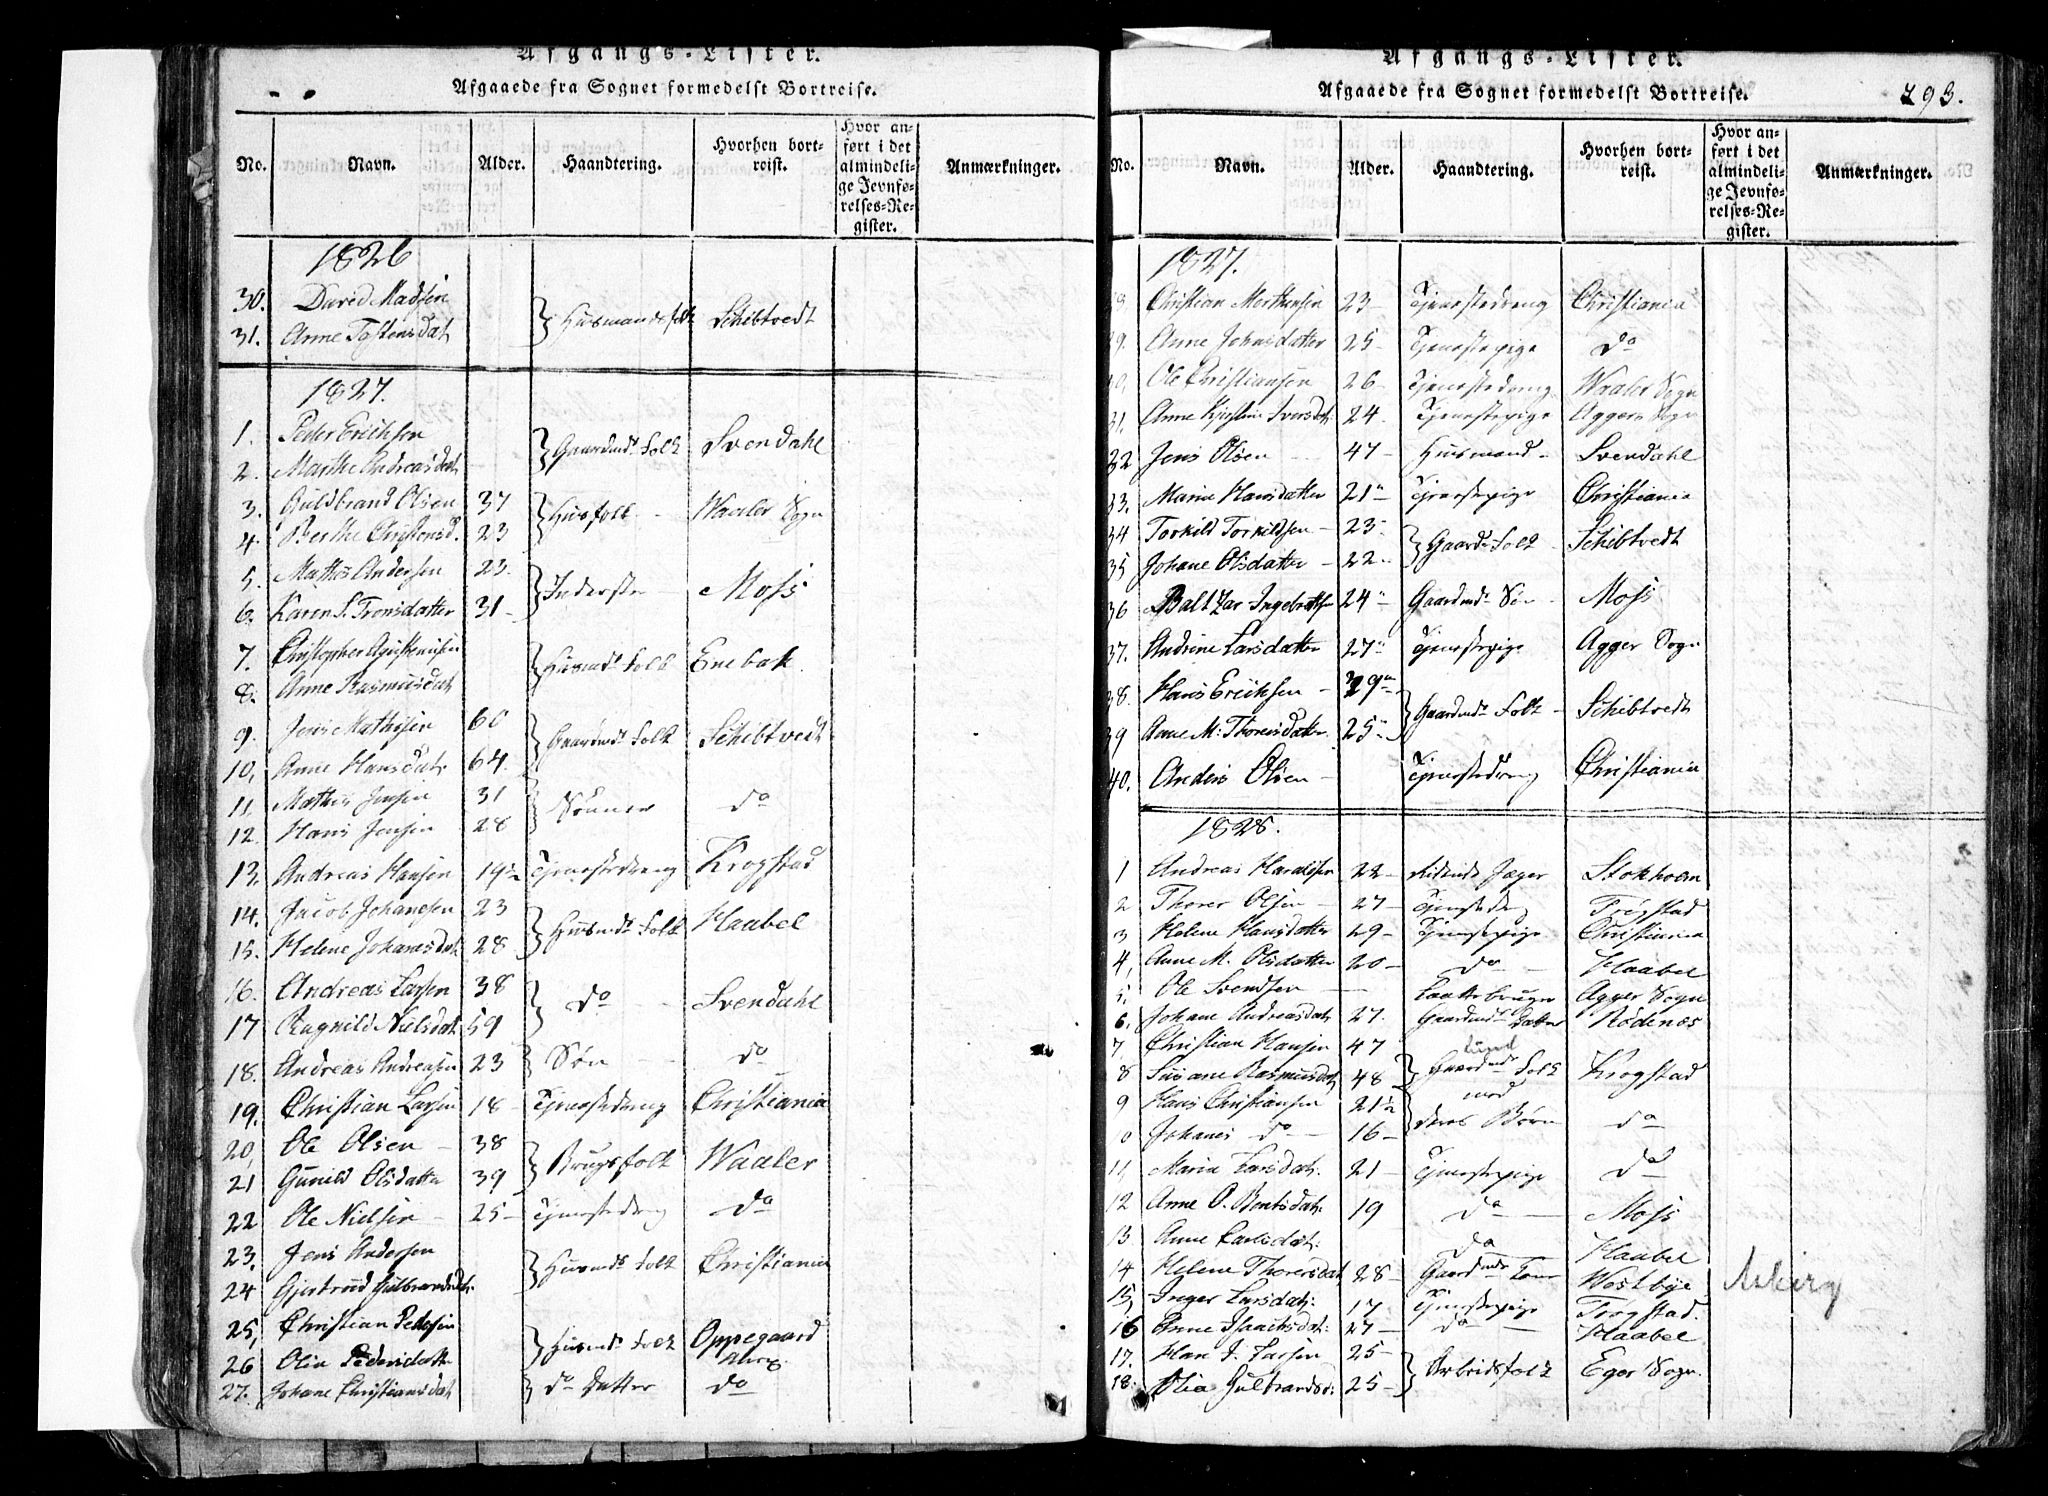 Afgangs-Lister.
Afgaaede fra Sognet formedelst Bortreise.
No. Navn. Alder. Haandtering. Hvorhen bortreist. Hvor anført i det almindelige Jevnførelses-Register. Anmærkninger.
1826
30. David Madsen } Huusmandsfolk Schibtvedt
31. Anne Tostensdat
1827.
1. Peder Erichsen } Gaardmds Folk Svendahl
2. Marthe Andreasdat
3. Guldbrand Olsen 37 } Huusfolk Waaler Sogn
4. Berthe Christensd. 23
5. Mathis Andersen 23 } Inderster Moss
6. Karen S. Tronsdatter 31
7. Christopher } Huusmds Folk Enebak
8. Anne Rasmusdat
9. Jens Mathisen 60 } Gaardmds Folk Schibtvedt
10. Anne Hansdatr 64
11. Mathis Jensen 31 } Sønner do
12. Hans Jensen 28
13. Andreas Hansen 19½ Tjenestedreng Krogstad
14. Jacob Johanesen 23 } Huusmds Folk Haabel
15. Helene Johanesdat 28
16. Andreas Larsen 38 } do Svendahl
17 Ragnild Nielsdat 59
18. Andreas Andreasen 23 } Søn do
19. Christian Larsen 18 Tjenestedreng Christiania
20, Ole Olsen 38 } Brugsfolk Waaler
21 Gunild Olsdatter 39
22 Ole Nielsen 25 Tjenestedreng do
23. Jens Andersen } Huusmds Folk Christiania
24 Gjertrud Gulbrandsdtr.
25, Christian Pedersen } Huusmds Folk Oppegaard
26 Olia Pedersdatter
27. Johane Christiansdat do Datter do
Afgangs-Lister.
Afgaaede fra Sognet formedelst Bortreise. 293.
No. Navn. Alder. Haandtering. Hvorhen bortreist. Hvor anført i det almindelige Jevnførelses-Register. Anmærkninger.
1827.
28. Christian Morthensen 23 Tjenestedreng Christiania
29. Anne Johnsdatter 25 Tjenestepige do
30. Ole Christiansen 26 Tjenestedreng Waaler Sogn
31. Anne Kjerstine Iversdt: 24 Tjenestepige Aggers Sogn
32 Jens Olsen 47 Huusmand Svendahl
33. Marin Hansdatter 21 Tjenestepige Christiania
34 Torkild Torkildsen 23 } Gaards Folk Schibtvedt
35 Johane Olsdatter 22
36 Baltzar Ingebretsen 24 Gaardmds Søn Moss
37. Andrine Larsdatter 27 Tjenestepige Agger Sogn
38. Hans Erichsen 29 } Gaardmds Folk Schibtvedt
39 Anne M: Thoresdatter 25
40. Anders Olsen Tjenestedreng Christiania
1828.
1 Andreas Haraldsen 22 Ridende Jæger Stokholm
2 Thorer Olsen 27 Tjenestedreng Trøgstad
3 Helene Hansdatter 29 Tjenestepige Christiania
4, Anne M. Olsdatter 20 do Haabel
5, Ole Svendsen Agger Sogn
6. Johane Andreasdatr 27. Gaardmds Datter Rødenæs
7, Christian Hansen 47 } Gaardmds Folk Krogstad
8 Susane Rasmusdatr 48 med
9 Hans Christiansen 21½ } deres Børn do
10 Johanes do 16
11, Maria Larsdatr. 21 Tjenestepige do
12 Anne O. Bentsdatr. 19 do Moss
13 Anne Carlsdatr: do Haabel
14 Helene Thorersdat 28 Gaardmds Kone Westbye Askerg
15, Inger Larsdatr: 17 Tjenestepige Trøgstad.
16 Anne Isaachsdat: 27 do Haabel
17. Han J. Larsen 25 } Arbeidsfolk Eger Sogn
18. Olia Gulbrandsd: 25